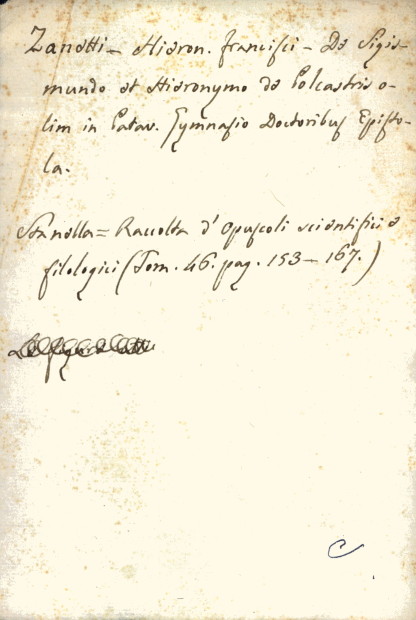 Zanetti - Hieron. Francisci - De Sigis-
mundo et Hieronymo de Polcastris o-
lim in Patav. Gymnasio Doctoribus Episto-
la.
Stanella = Raccolta d'Opuscoli scientifici e
filologici (Tom. 46. pag. 153 - 167.)